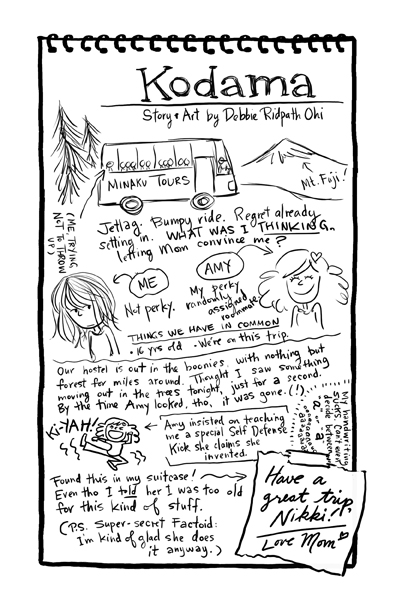 Kodama
Story & Art by Debbie Ridpath Ohi
MINAKU TOURS
Mt. Fuji!
(ME, TRYING
NOT TO THROW
UP)
Jetlag. Bumpy ride. Regret already
setting in. WHAT WAS I THINKING,
letting Mom convince me?
ME
Not perky.
AMY
My perky
randomly
assigned
roommate.
THINGS WE HAVE IN COMMON
• 16 yrs old • We're on this trip.
Our hostel is out in the boonies, with nothing but
forest for miles around. Thought I saw something
moving out in the trees tonight, just for a second.
By the time Amy looked, tho, it was gone. (!)
Ki-YAH!
Amy insisted on teaching
me a special Self Defense
Kick she claims she
invented.
My handwriting
sucks. Can't even
decide between
"a" "a"
Found this in my suitcase!
Even tho I told her I was too old
for this kind of stuff.
(P.S. Super-secret Factoid:
I'm kind of glad she does
it anyway.)
Have a
great trip,
Nikki!
Love Mom